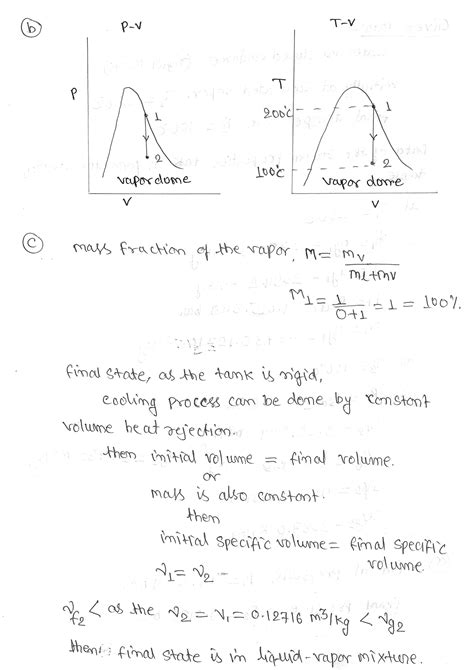 (b) P-V T-V
P
1
2
vapor dome
V
T
200°C
1
100°C
2
vapor dome
V
(c) mass fraction of the vapor, M = mv / ml+mv
M1 = 1 / 0+1 = 1 = 100%
final state, as the tank is rigid,
cooling process can be done by constant
volume heat rejection.
then initial volume = final volume.
or
mass is also constant.
then
initial specific volume = final specific
volume
ν1 = ν2 -
νf2 < as the ν2 = ν1 = 0.12716 m³/kg < νg2
then: final state is in liquid-vapor mixture.